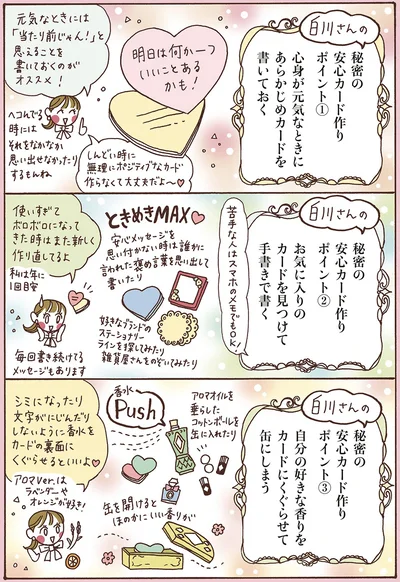 白川さんの
秘密の
安心カード作り
ポイント①
心身が元気なときに
あらかじめカードを
書いておく
明日は何か一つ
いいことある
かも!
元気なときには
「当たり前じゃん!」と
思えることを
書いておくのが
オススメ!
ヘコんでる
時には
それをなかなか
思い出せなかったり
するもんね
しんどい時に
無理にポジティブなカード
作らなくて大丈夫だよ〜♡
白川さんの
秘密の
安心カード作り
ポイント②
お気に入りの
カードを見つけて
手書きで書く
苦手な人はスマホのメモでもOK!
ときめきMAX♡
安心メッセージを
思い付かない時は誰かに
言われた褒め言葉を思い出して
書いたり
好きなブランドの
ステーショナリー
ラインを探してみたり
雑貨屋さんをのぞいてみたり
使いすぎて
ボロボロになって
きた時はまた新しく
作り直してるよ
私は年に
1回目安
毎回書き続ける
メッセージもあります
白川さんの
秘密の
安心カード作り
ポイント③
自分の好きな香りを
カードにくぐらせて
缶にしまう
アロマオイルを
垂らした
コットンボールを
缶に入れたり
香水
Push
缶を開けると
ほのかにいい香りが
シミになったり
文字がにじんだり
しないように香水を
カードの裏面に
くぐらせるといいよ♡
アロマVer.は
ラベンダーや
オレンジが好き!